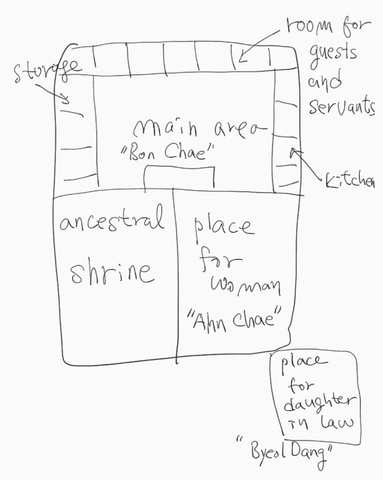 room for
guests
and
servants
storage
main area
"Bon Chae"
kitchen
ancestral
shrine
place
for
woman
"Ahn Chae"
place
for
daughter
in law
"Byeol Dang"